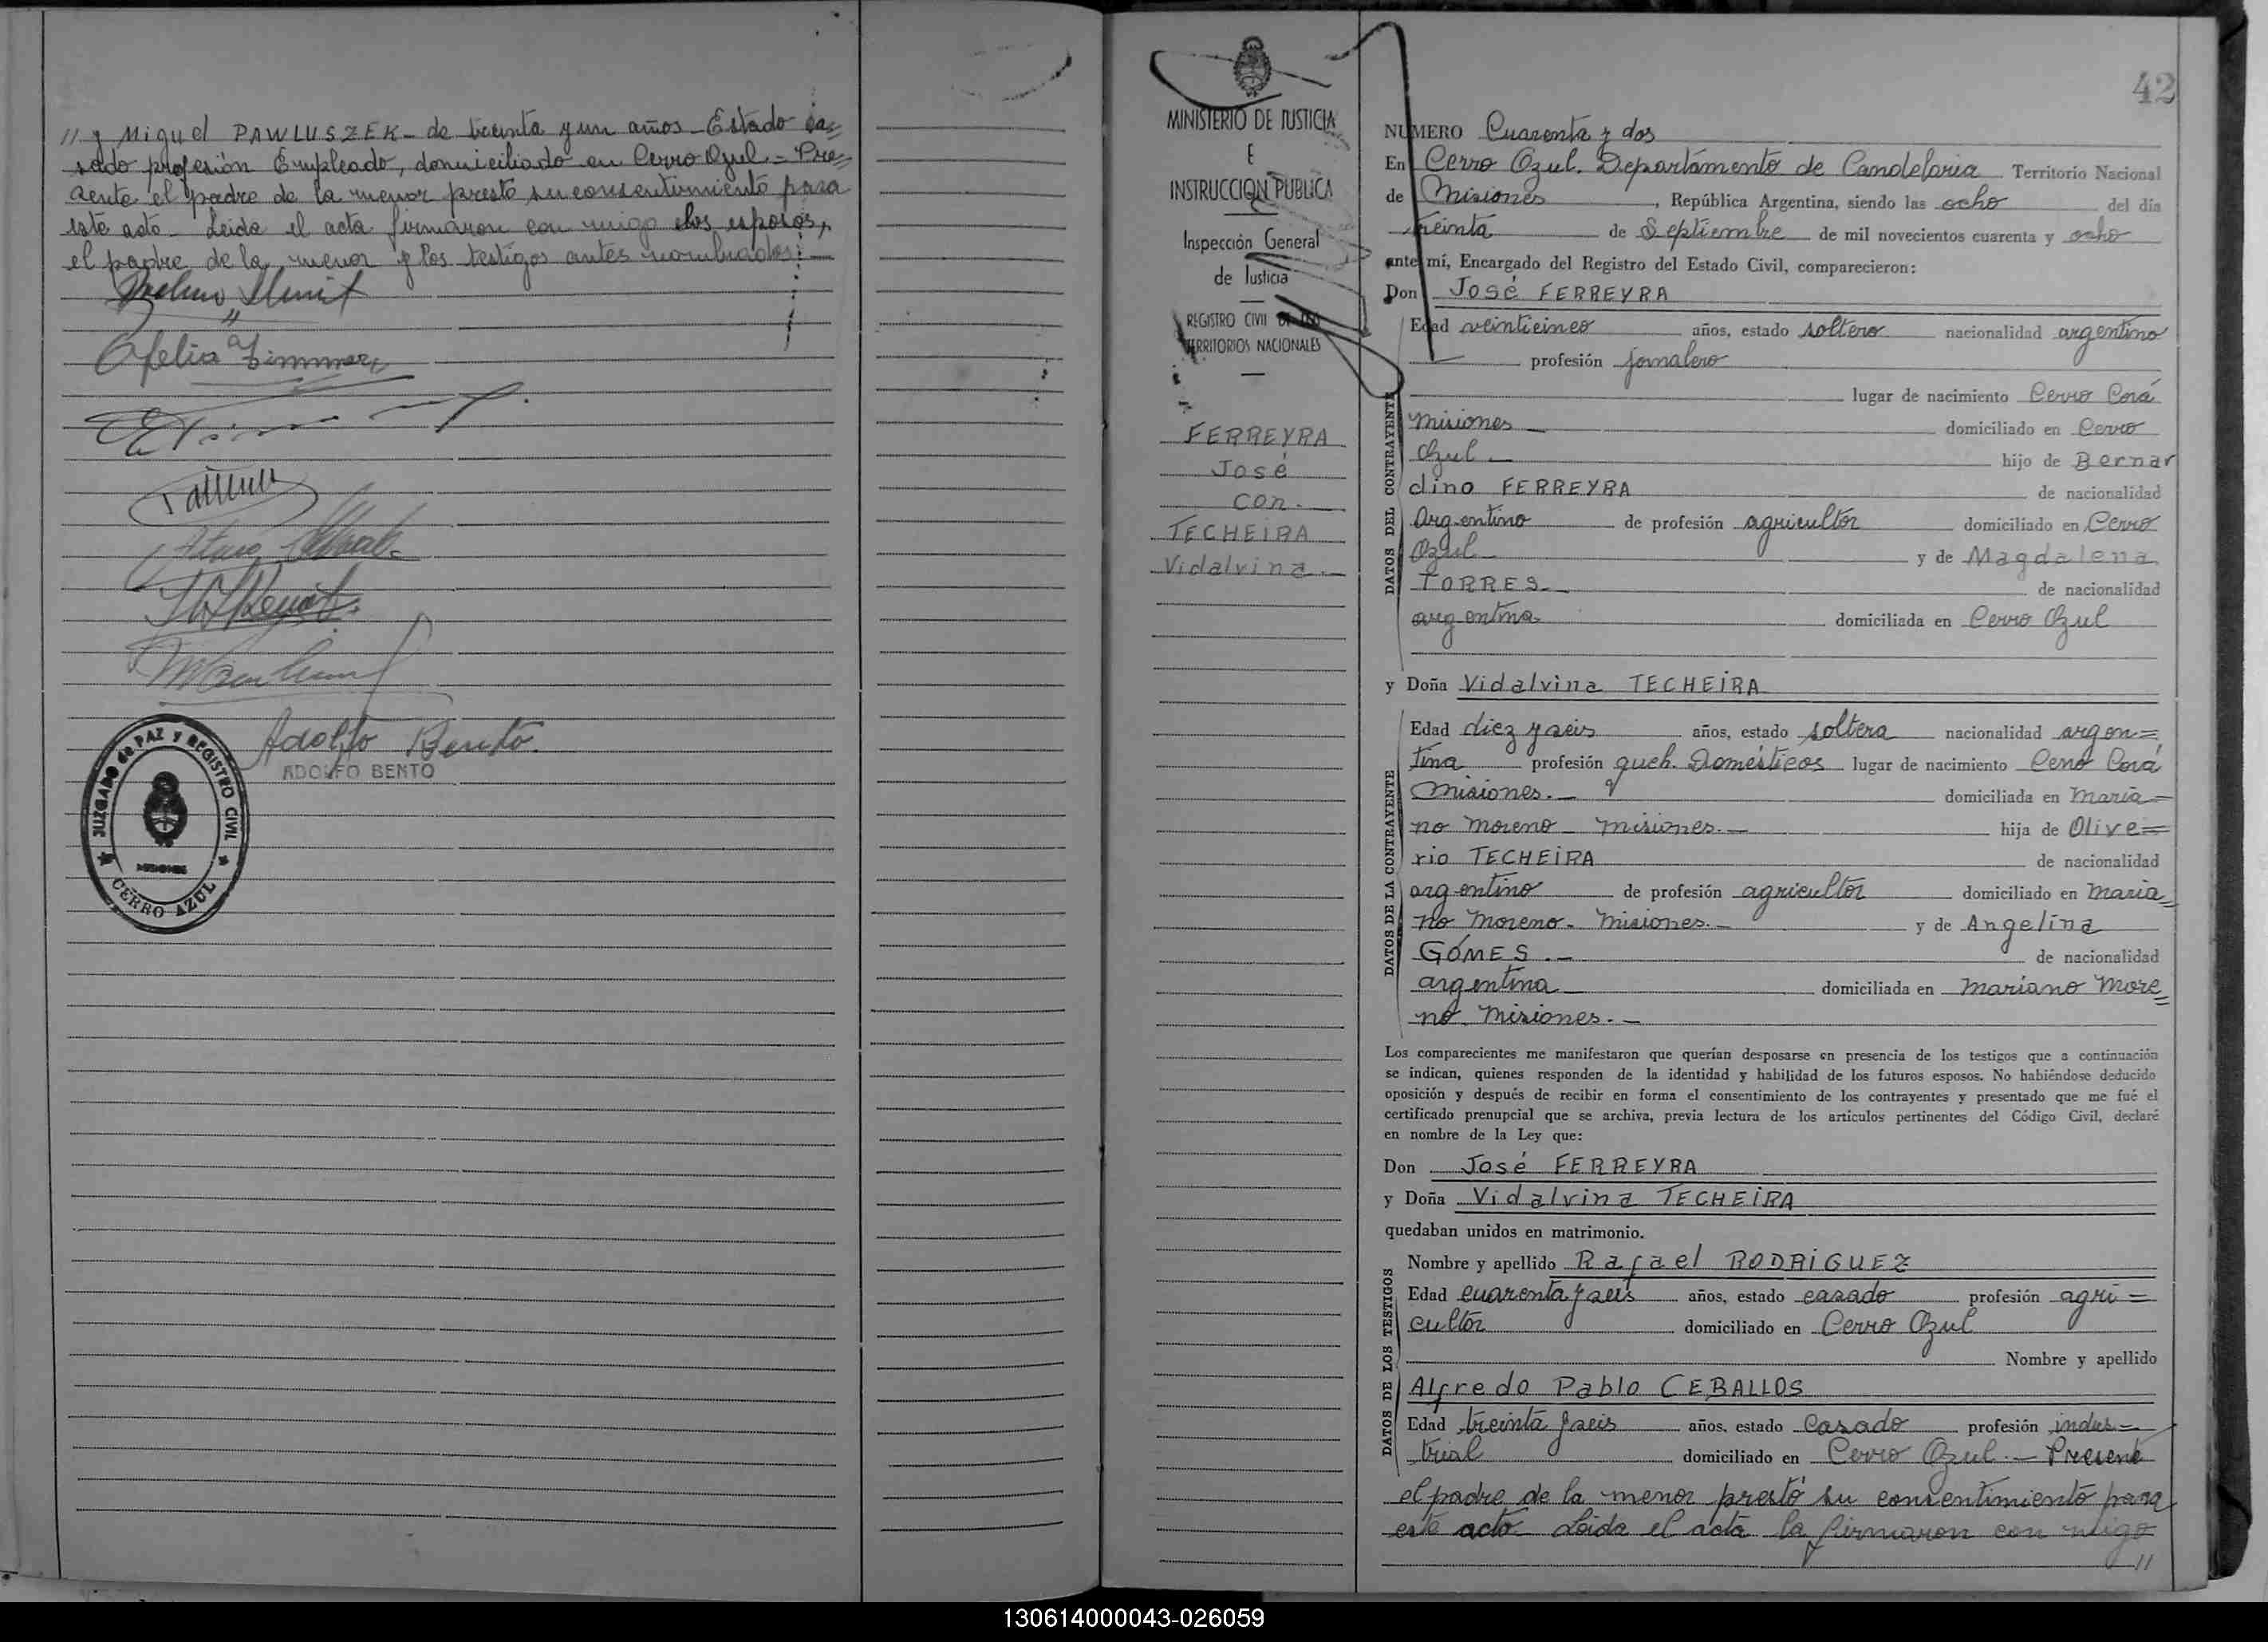 // y Miguel PAWLUSZEK - de treinta y un años - Estado ca=
sado profesión Empleado, domiciliado en Cerro Azul. - Pre=
sente el padre de la menor prestó su consentimiento para
este acto - Leida el acta firmaron con migo los esposos,
el padre de la menor y los testigos antes nombrados: -
Ofelia Zimmer
Adolfo Bento.
ADOLFO BENTO
JUZGADO de PAZ y REGISTRO CIVIL
MISIONES
CERRO AZUL
MINISTERIO DE JUSTICIA
E
INSTRUCCION PUBLICA
Inspección General
de Justicia
REGISTRO CIVIL DE LOS
TERRITORIOS NACIONALES
FERREYRA
José
con.
TECHEIRA
Vidalvina.-
42
NUMERO Cuarenta y dos
En Cerro Azul. Departamento de Candelaria Territorio Nacional
de Misiones, República Argentina, siendo las ocho del día
treinta de Septiembre de mil novecientos cuarenta y ocho
ante mí, Encargado del Registro del Estado Civil, comparecieron:
Don José FERREYRA
DATOS DEL CONTRAYENTE
Edad veinticinco años, estado soltero nacionalidad argentino
profesión jornalero
lugar de nacimiento Cerro Corá
Misiones domiciliado en Cerro
Azul hijo de Bernar
dino FERREYRA de nacionalidad
Argentino de profesión agricultor domiciliado en Cerro
Azul y de Magdalena
TORRES de nacionalidad
argentina domiciliada en Cerro Azul
y Doña Vidalvina TECHEIRA
DATOS DE LA CONTRAYENTE
Edad diez y seis años, estado soltera nacionalidad argen=
tina profesión queh. Domésticos lugar de nacimiento Cerro Corá
Misiones.- domiciliada en Maria=
no Moreno - Misiones.- hija de Olive=
rio TECHEIRA de nacionalidad
argentino de profesión agricultor domiciliado en Maria=
no Moreno - Misiones.- y de Angelina
GÓMES.- de nacionalidad
argentina domiciliada en Mariano More=
no. Misiones.-
Los comparecientes me manifestaron que querían desposarse en presencia de los testigos que a continuación
se indican, quienes responden de la identidad y habilidad de los futuros esposos. No habiéndose deducido
oposición y después de recibir en forma el consentimiento de los contrayentes y presentado que me fué el
certificado prenupcial que se archiva, previa lectura de los artículos pertinentes del Código Civil, declaré
en nombre de la Ley que:
Don José FERREYRA
y Doña Vidalvina TECHEIRA
quedaban unidos en matrimonio.
DATOS DE LOS TESTIGOS
Nombre y apellido Rafael RODRIGUEZ
Edad cuarenta y seis años, estado casado profesión agri=
cultor domiciliado en Cerro Azul
Nombre y apellido
Alfredo Pablo CEBALLOS
Edad treinta y seis años, estado casado profesión indus=
trial domiciliado en Cerro Azul.- Presente
el padre de la menor prestó su consentimiento para
este acto - Leida el acta la firmaron con migo
//
130614000043-026059